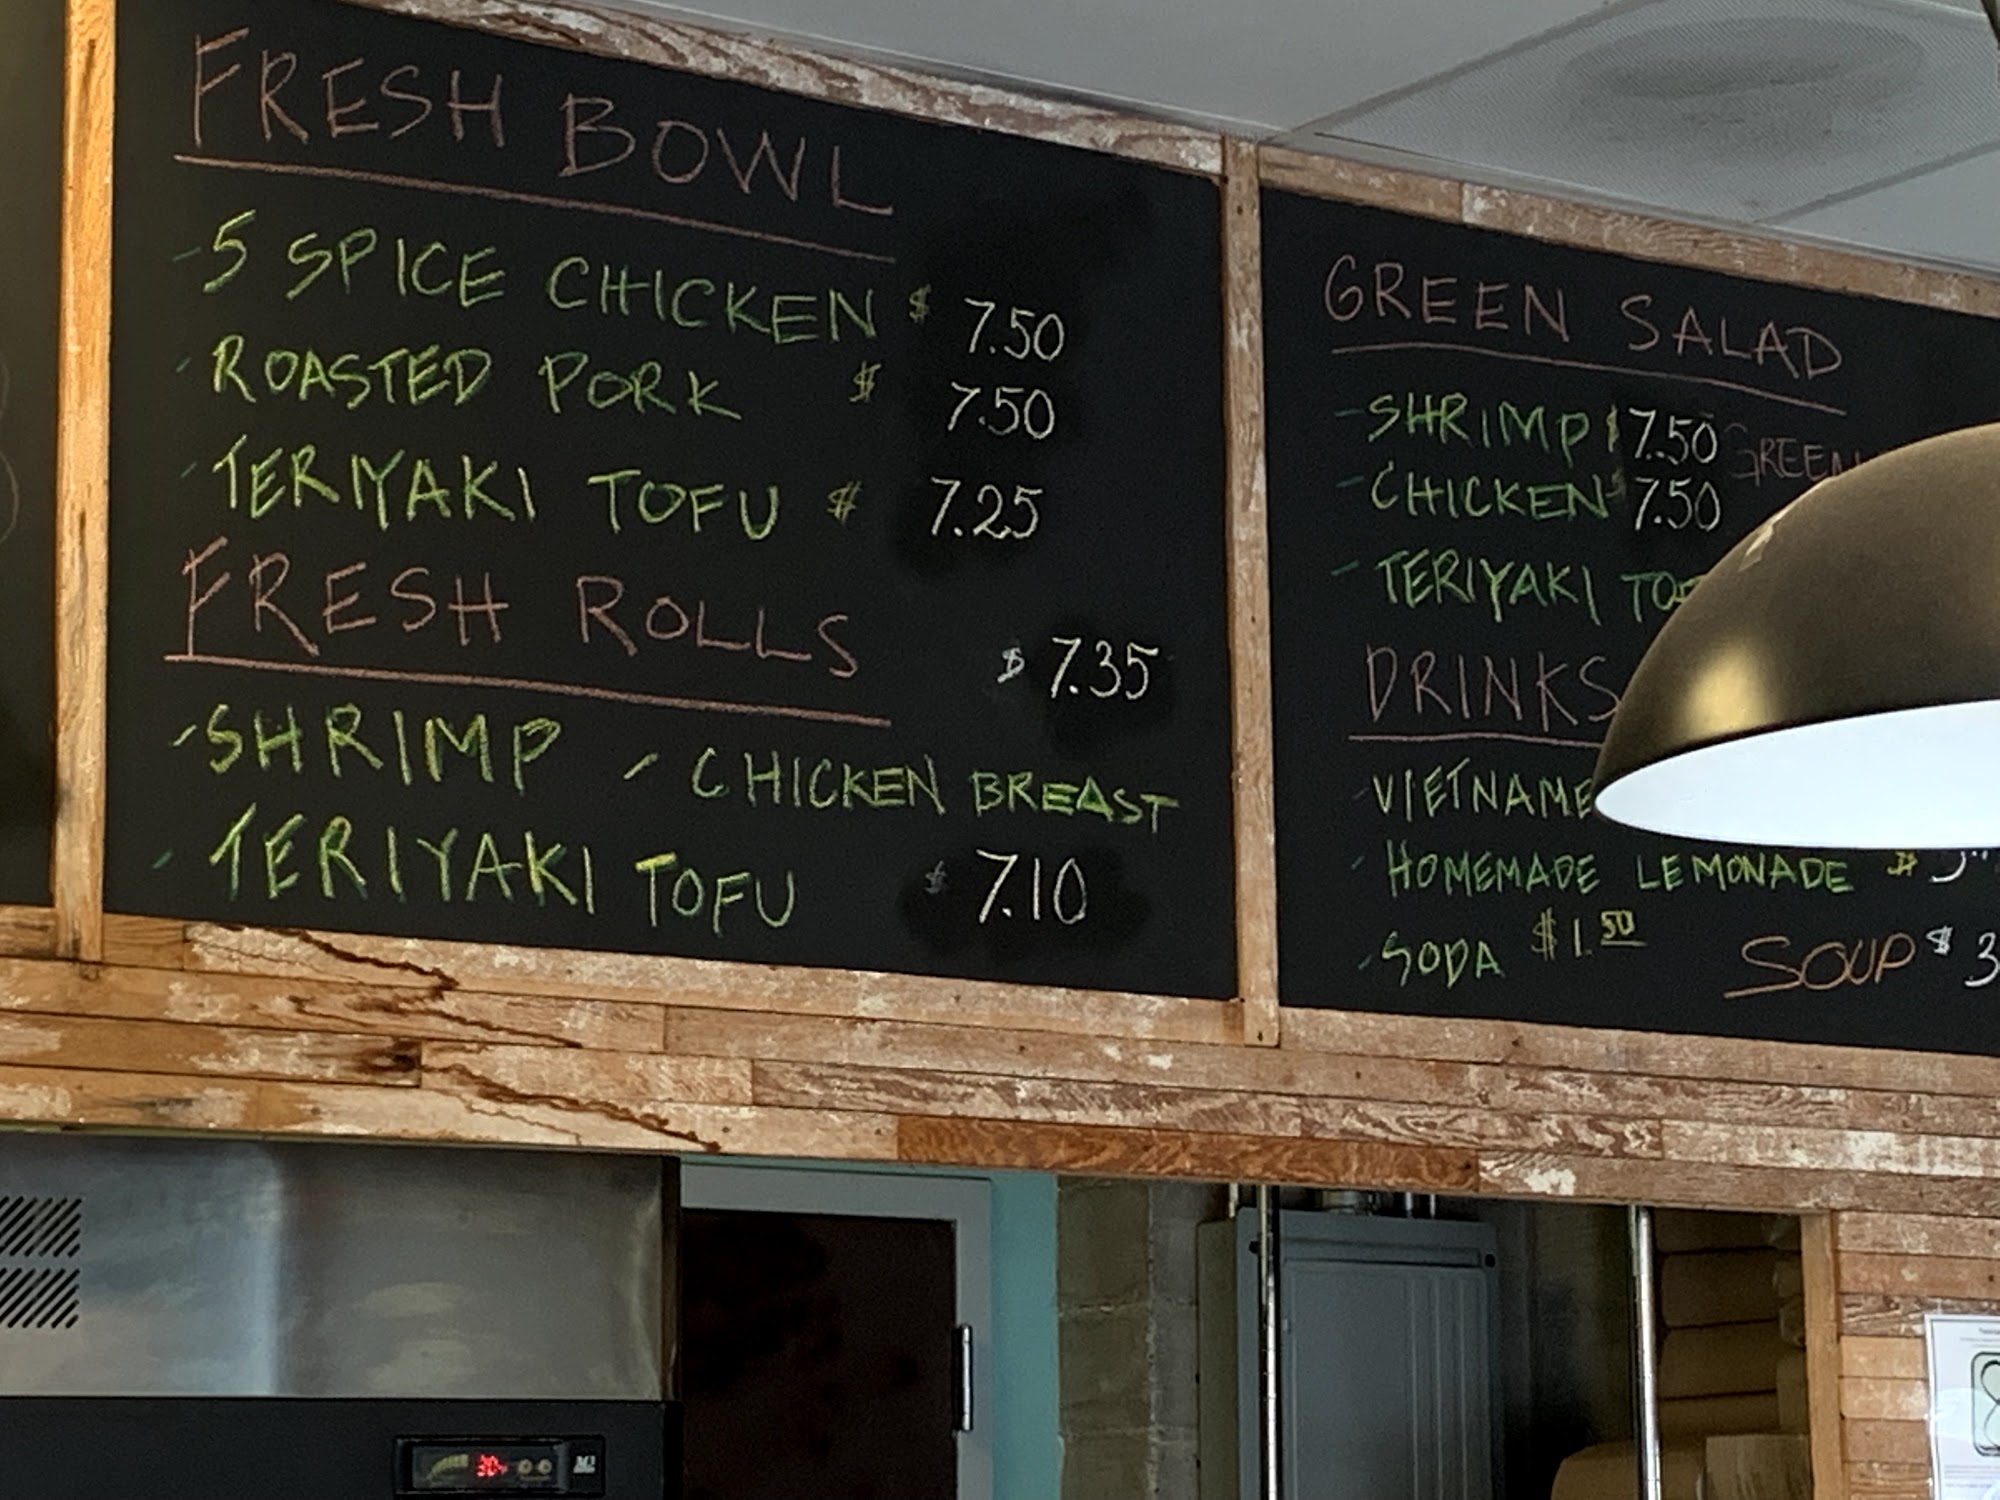 FRESH BOWL
-5 SPICE CHICKEN $ 7.50
- ROASTED PORK $ 7.50
- TERIYAKI TOFU $ 7.25
FRESH ROLLS $ 7.35
- SHRIMP - CHICKEN BREAST
- TERIYAKI TOFU $ 7.10
GREEN SALAD
- SHRIMP $ 7.50 GREEN
- CHICKEN $ 7.50
- TERIYAKI
DRINKS
- HOMEMADE LEMONADE $
- SODA $1.50
SOUP $ 3